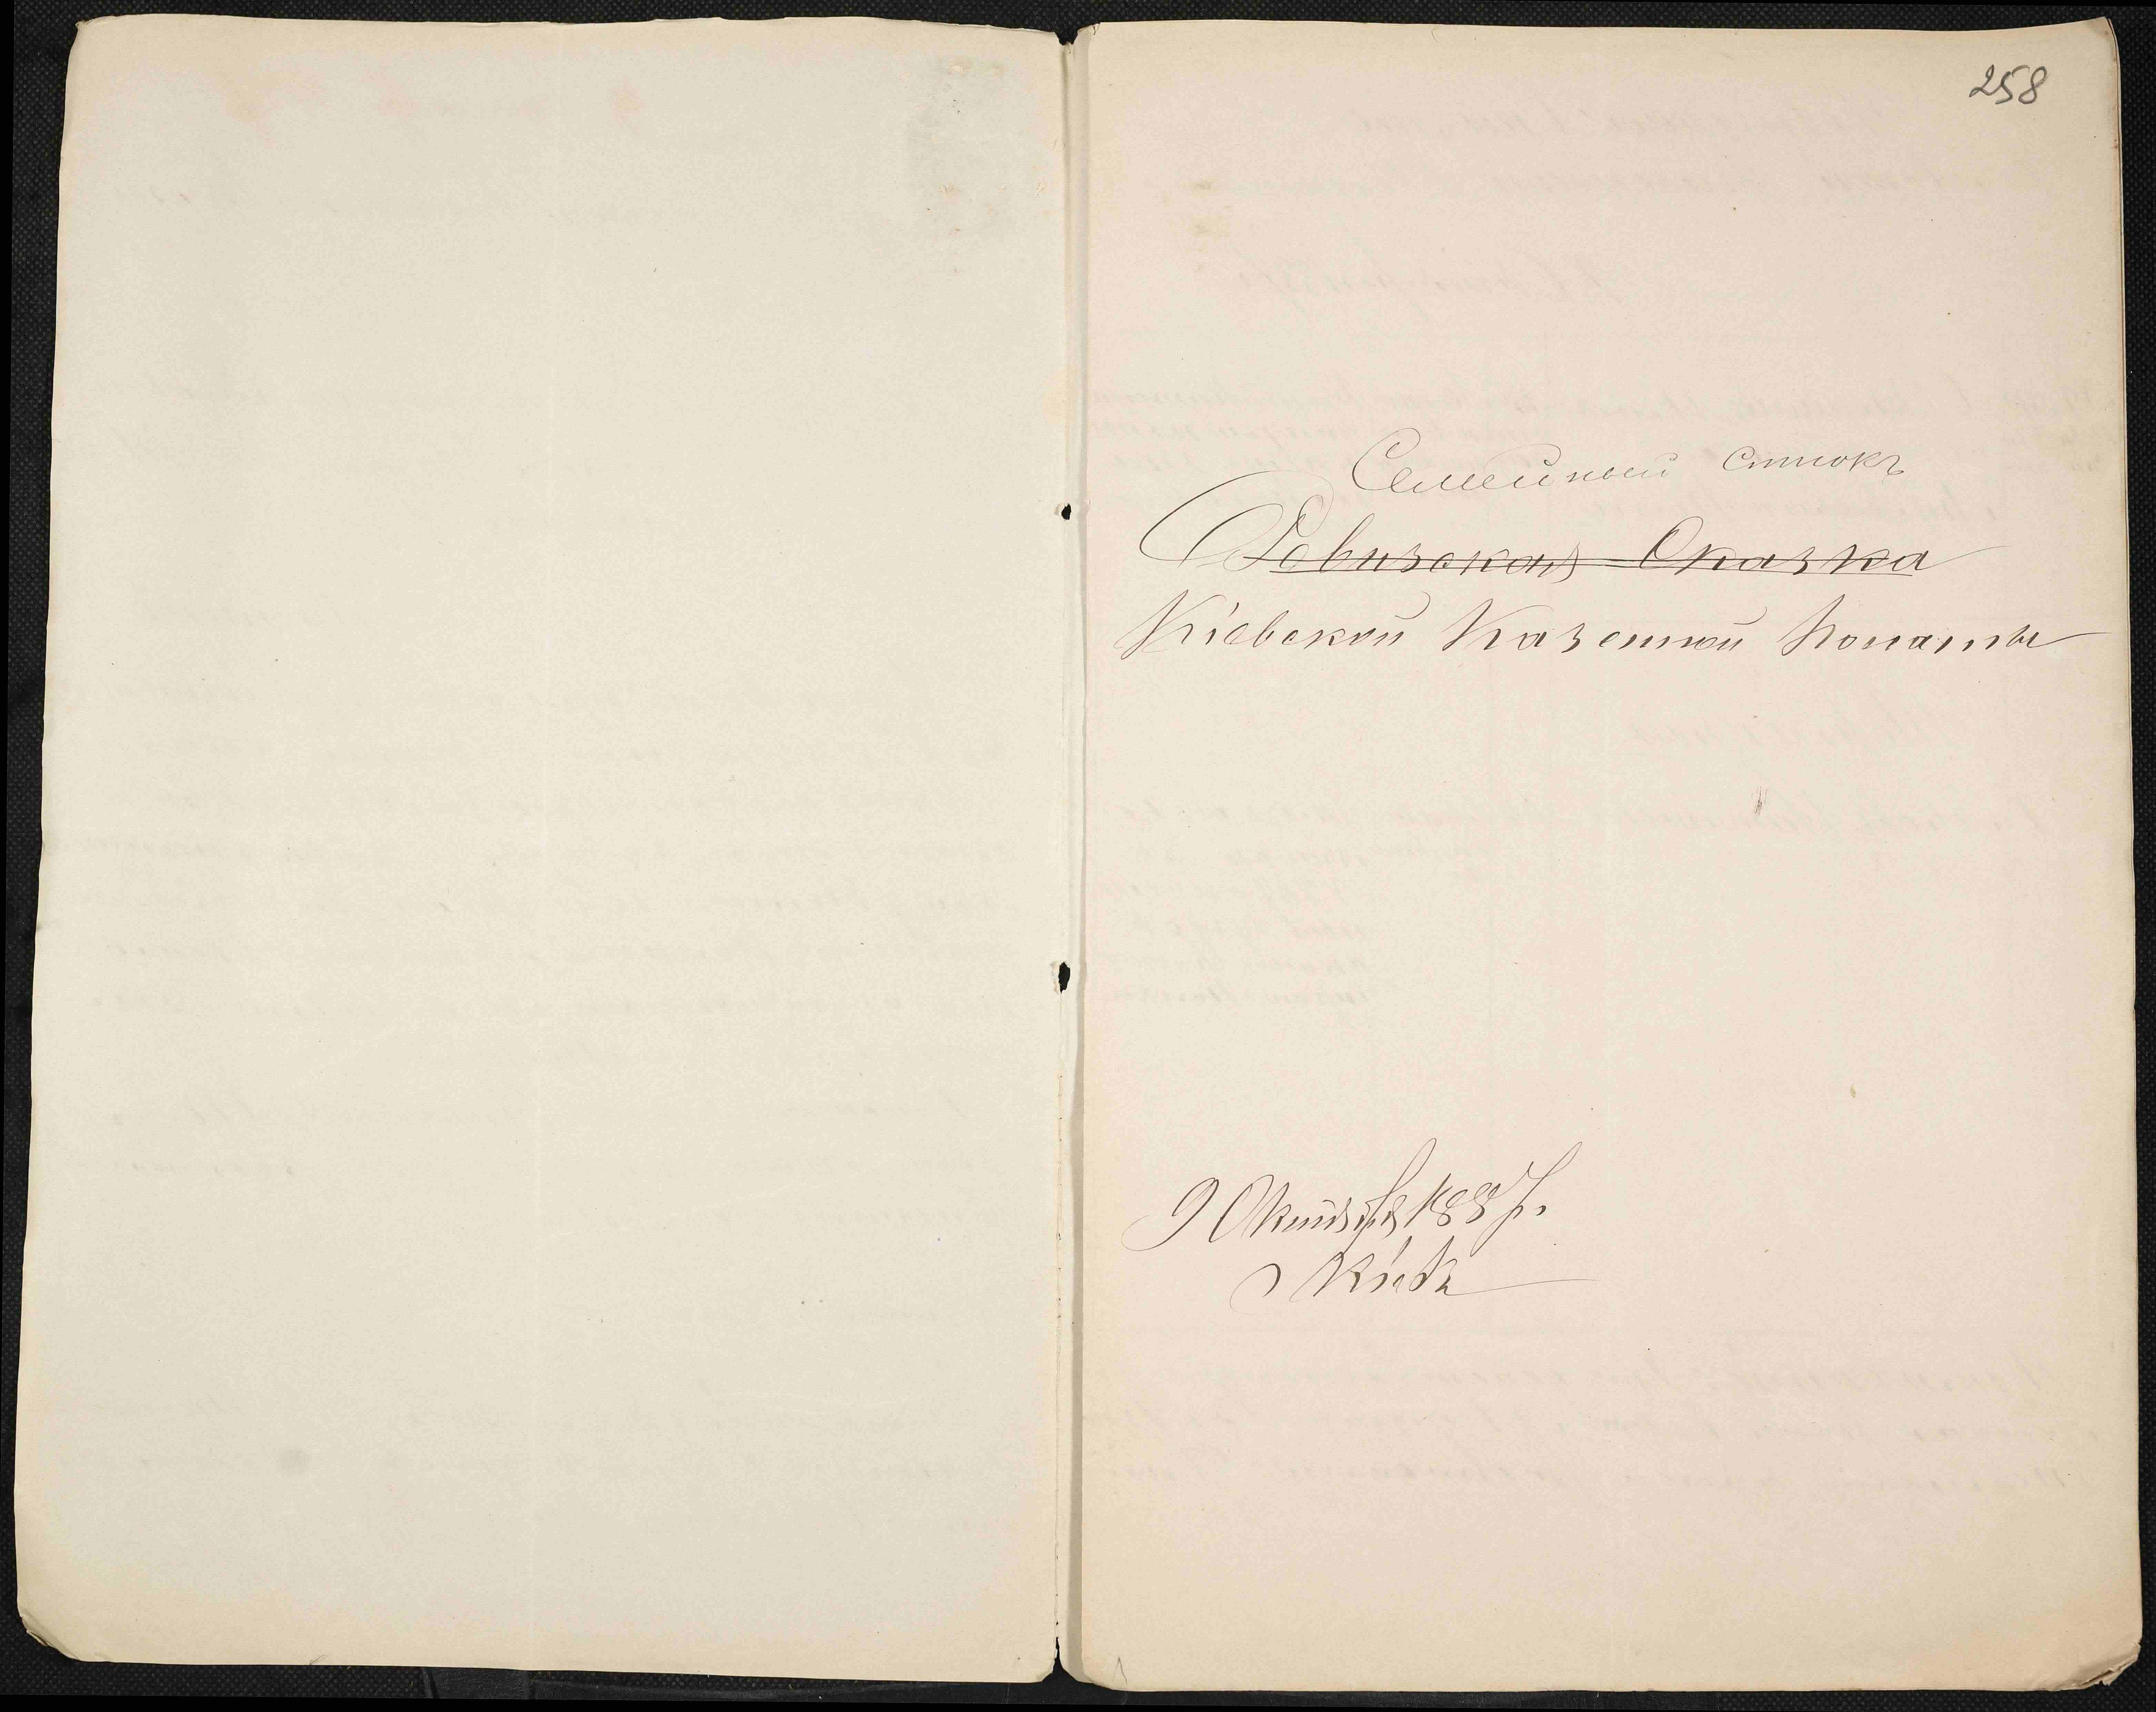 258
Семейный списокъ
Ревизская Сказка
Кіевской Казенной Палаты
9 Октября 1887 г.
Кіевъ